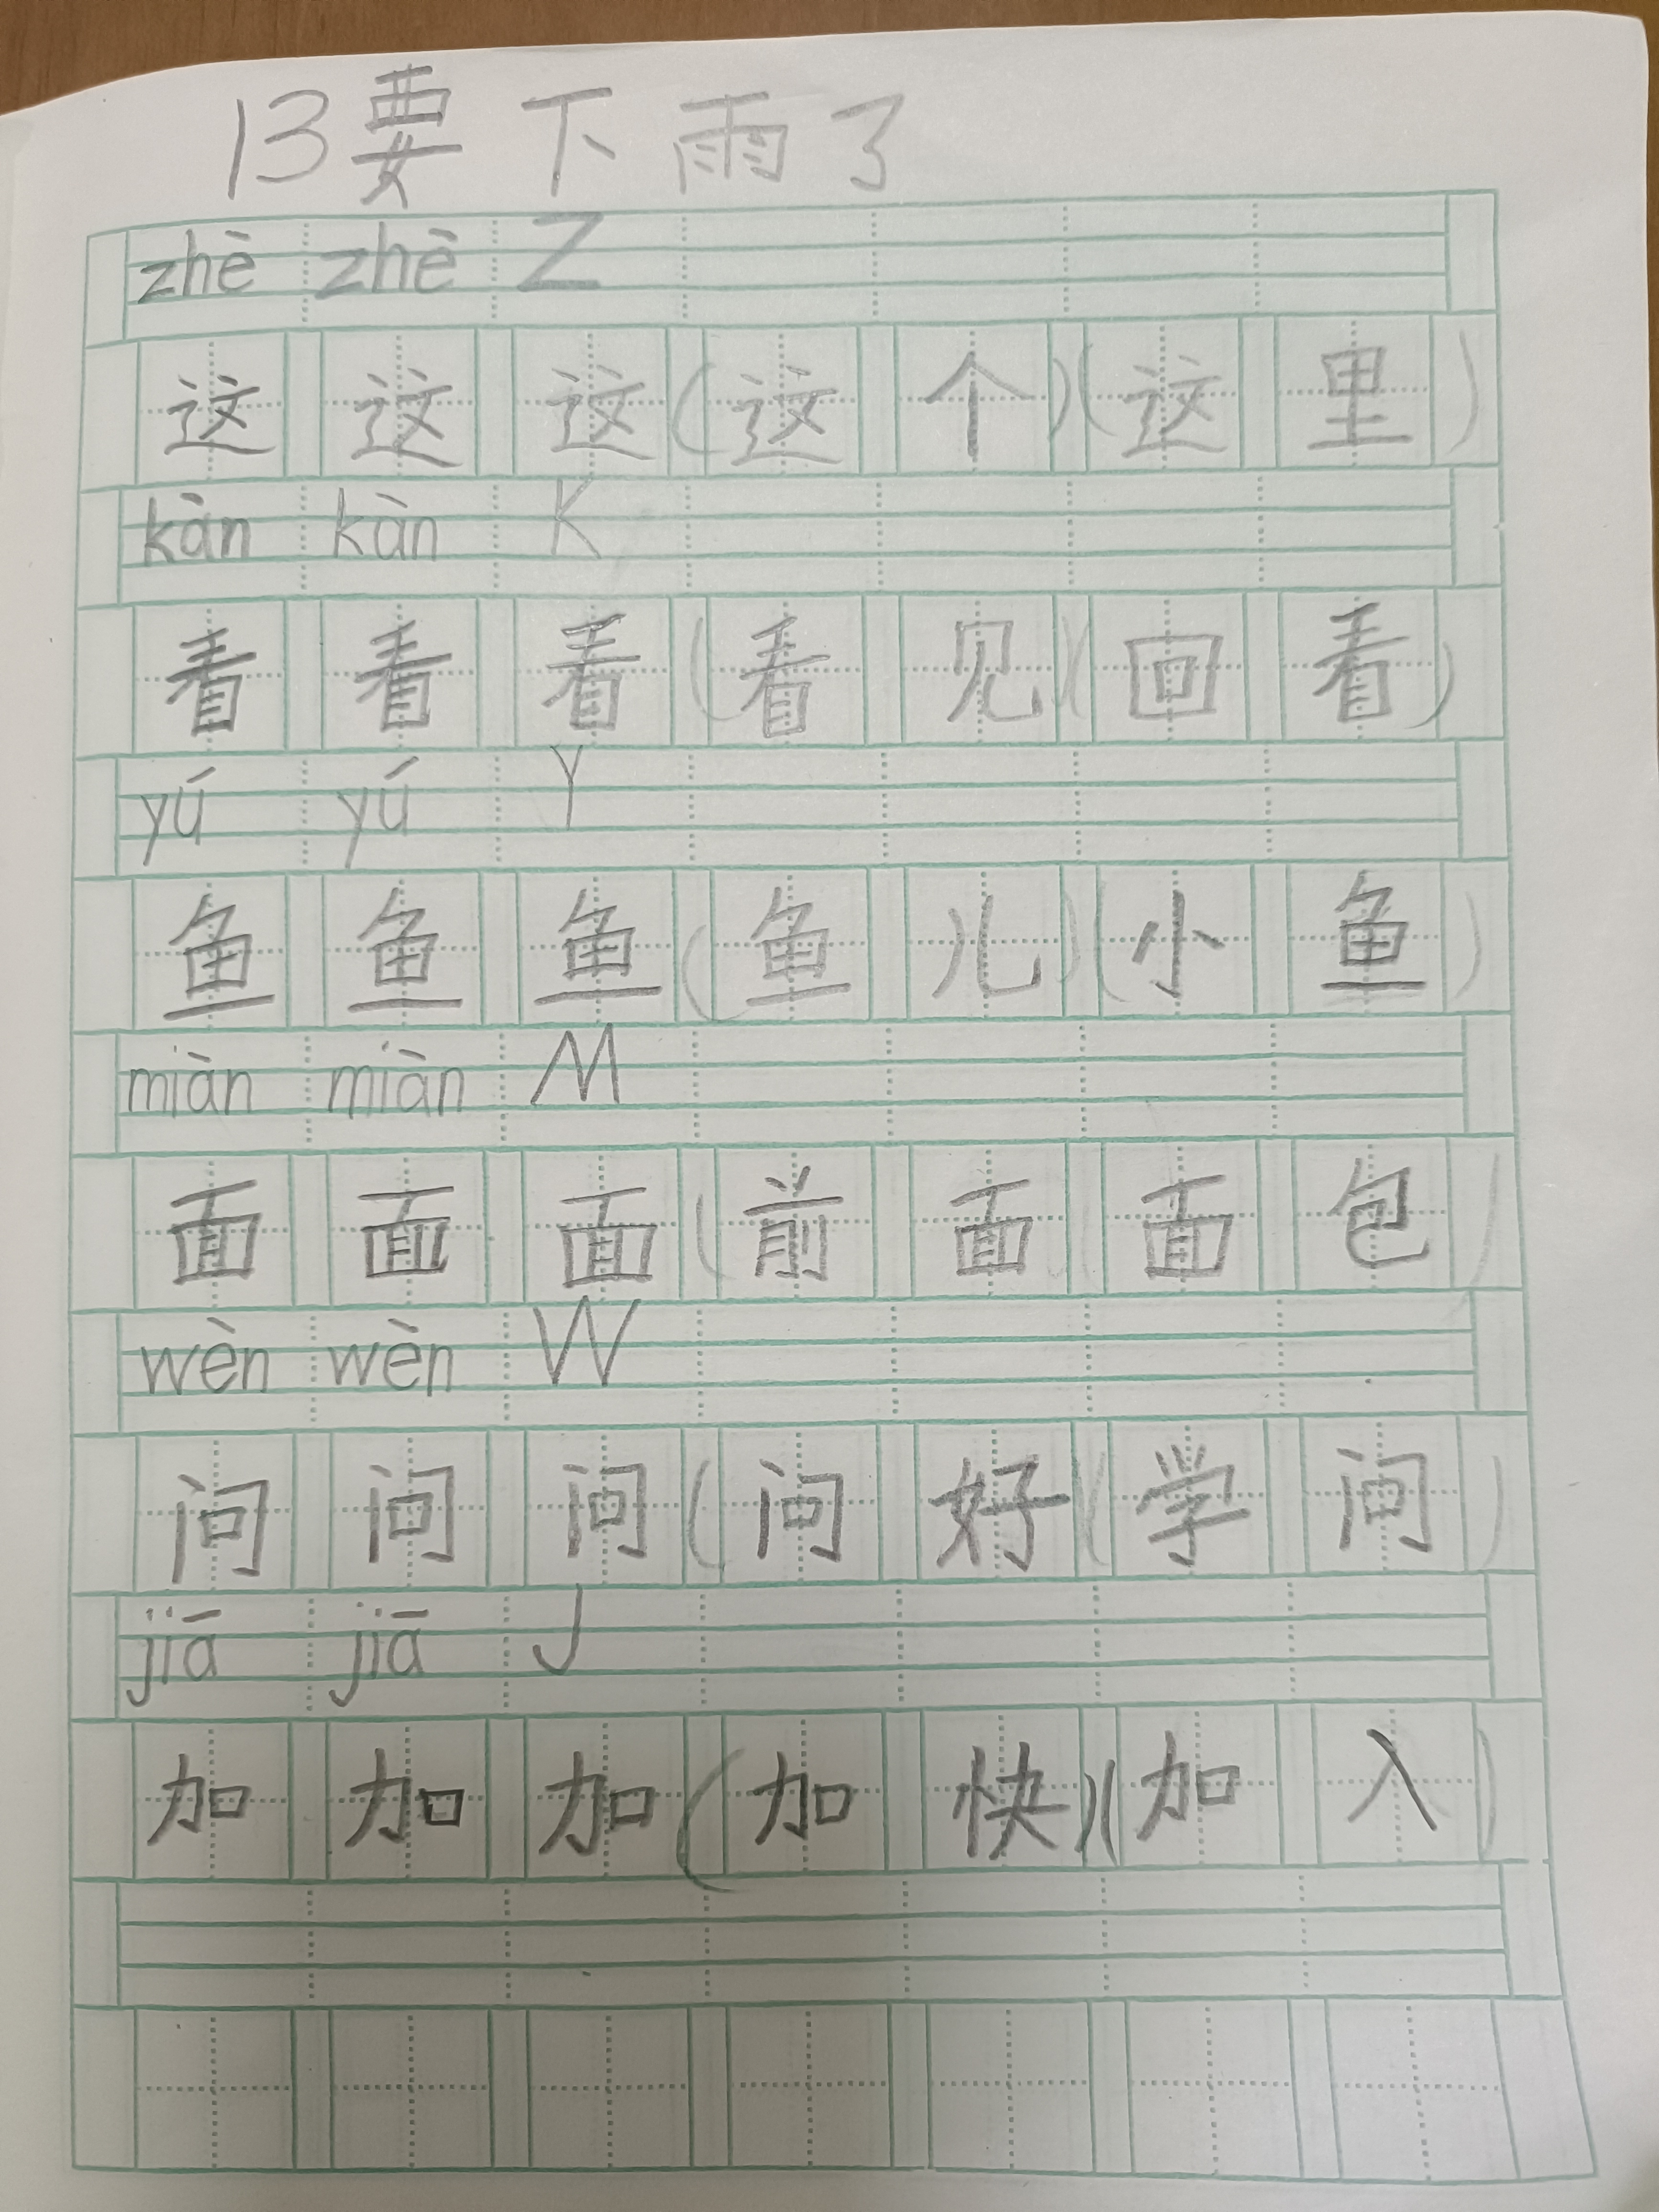 13要下雨了
zhè zhè Z
这 这 这(这 个)(这 里)
kàn kàn K
看 看 看(看 见)(回 看)
yú yú Y
鱼 鱼 鱼(鱼 儿)(小 鱼)
miàn miàn M
面 面 面(前 面)(面 包)
wèn wèn W
问 问 问(问 好)(学 问)
jiā jiā J
加 加 加(加 快)(加 入)